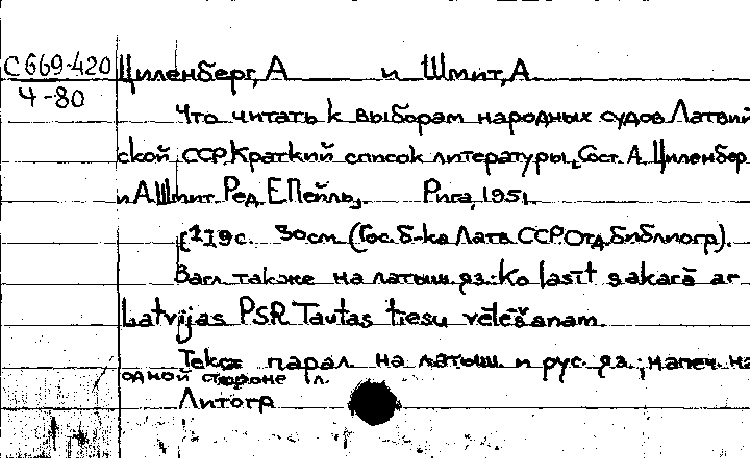 С669-420 Циленберг, А и Шмит, А.
4-80
Что читать к выборам народных судов Латвий
ской ССР. Краткий список литературы. Сост. А. Циленбер
и А. Шмит. Ред. Е. Пейль. Рига, 1951.
19с. 30см (Гос. б-ка Латв ССР. Отд. библиогр).
Загл. также на латыш. яз.: Ko lasīt sakarā ar
Latvijas PSR Tautas tiesu vēlēšanām.
Текст парал на латыш. и рус. яз.; напеч. на
одной стороне л.
Литогр